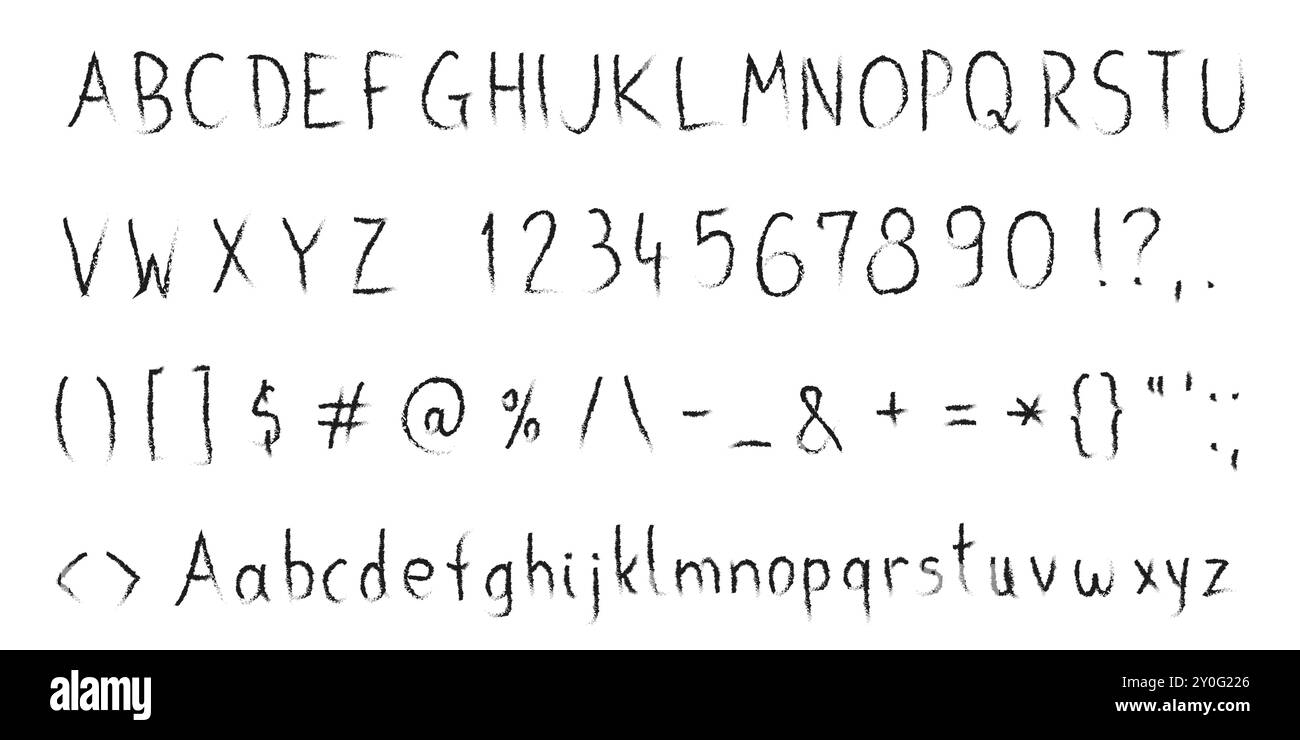 ABCDEFGHIJKLMNOPQRSTU
VWXYZ 1234567890!?,.
()[]$#@%/\-_&+=*{}"':;
<>Aabcdefghijklmnopqrstuvwxyz
alamy
Image ID: 2Y0G226
www.alamy.com